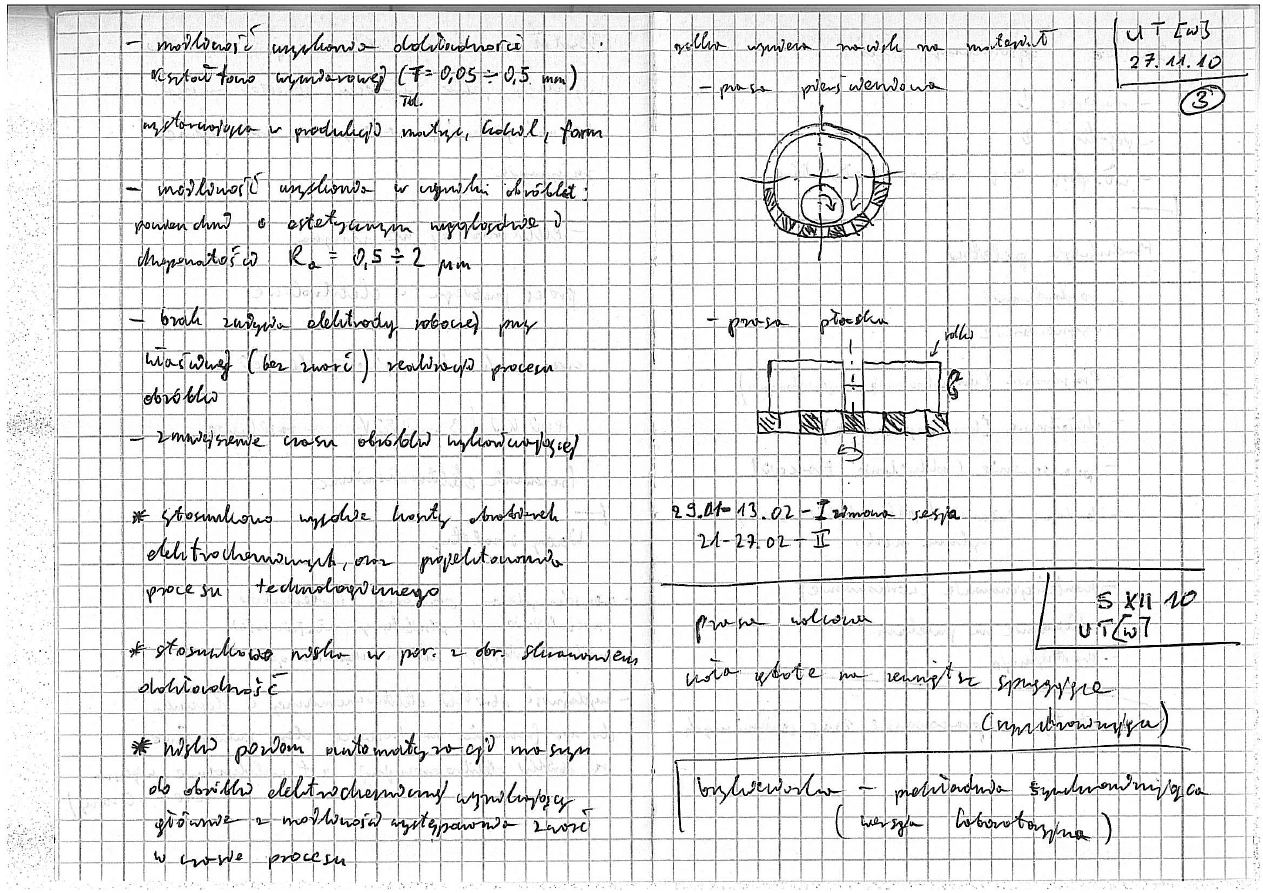 - możliwość uzyskania dokładności
kształtowo wymiarowej (T = 0,05 ÷ 0,5 mm)
wystarczająca w produkcji matryc, kokil, form
- możliwość uzyskania w wyniku obróbki
powierzchni o estetycznym wyglądzie i
chropowatości Ra = 0,5 ÷ 2 μm
- brak zużycia elektrody roboczej przy
właściwej (bez zwarć) realizacji procesu
obróbki
- zmniejszenie czasu obróbki wykończającej
* stosunkowo wysokie koszty obrabiarek
elektrochemicznych, oraz projektowania
procesu technologicznego
* stosunkowo niska w por. z obr. skrawaniem
dokładność
* niski poziom automatyzacji maszyn
do obróbki elektrochemicznej wynikający
głównie z możliwości występowania zwarć
w czasie procesu
UT [w]
27.11.10
3
rolka wywiera nacisk na materiał
- prasa pierścieniowa
- prasa płaska
rolki
29.01-13.02 - I zimowa sesja
21-27.02 - II
5 XII 10
UT [w]
prasa walcowa
koła zębate na zewnątrz sprzęgające
(synchronizujące)
brykieciarka - przekładnia synchronizująca
(wersja laboratoryjna)